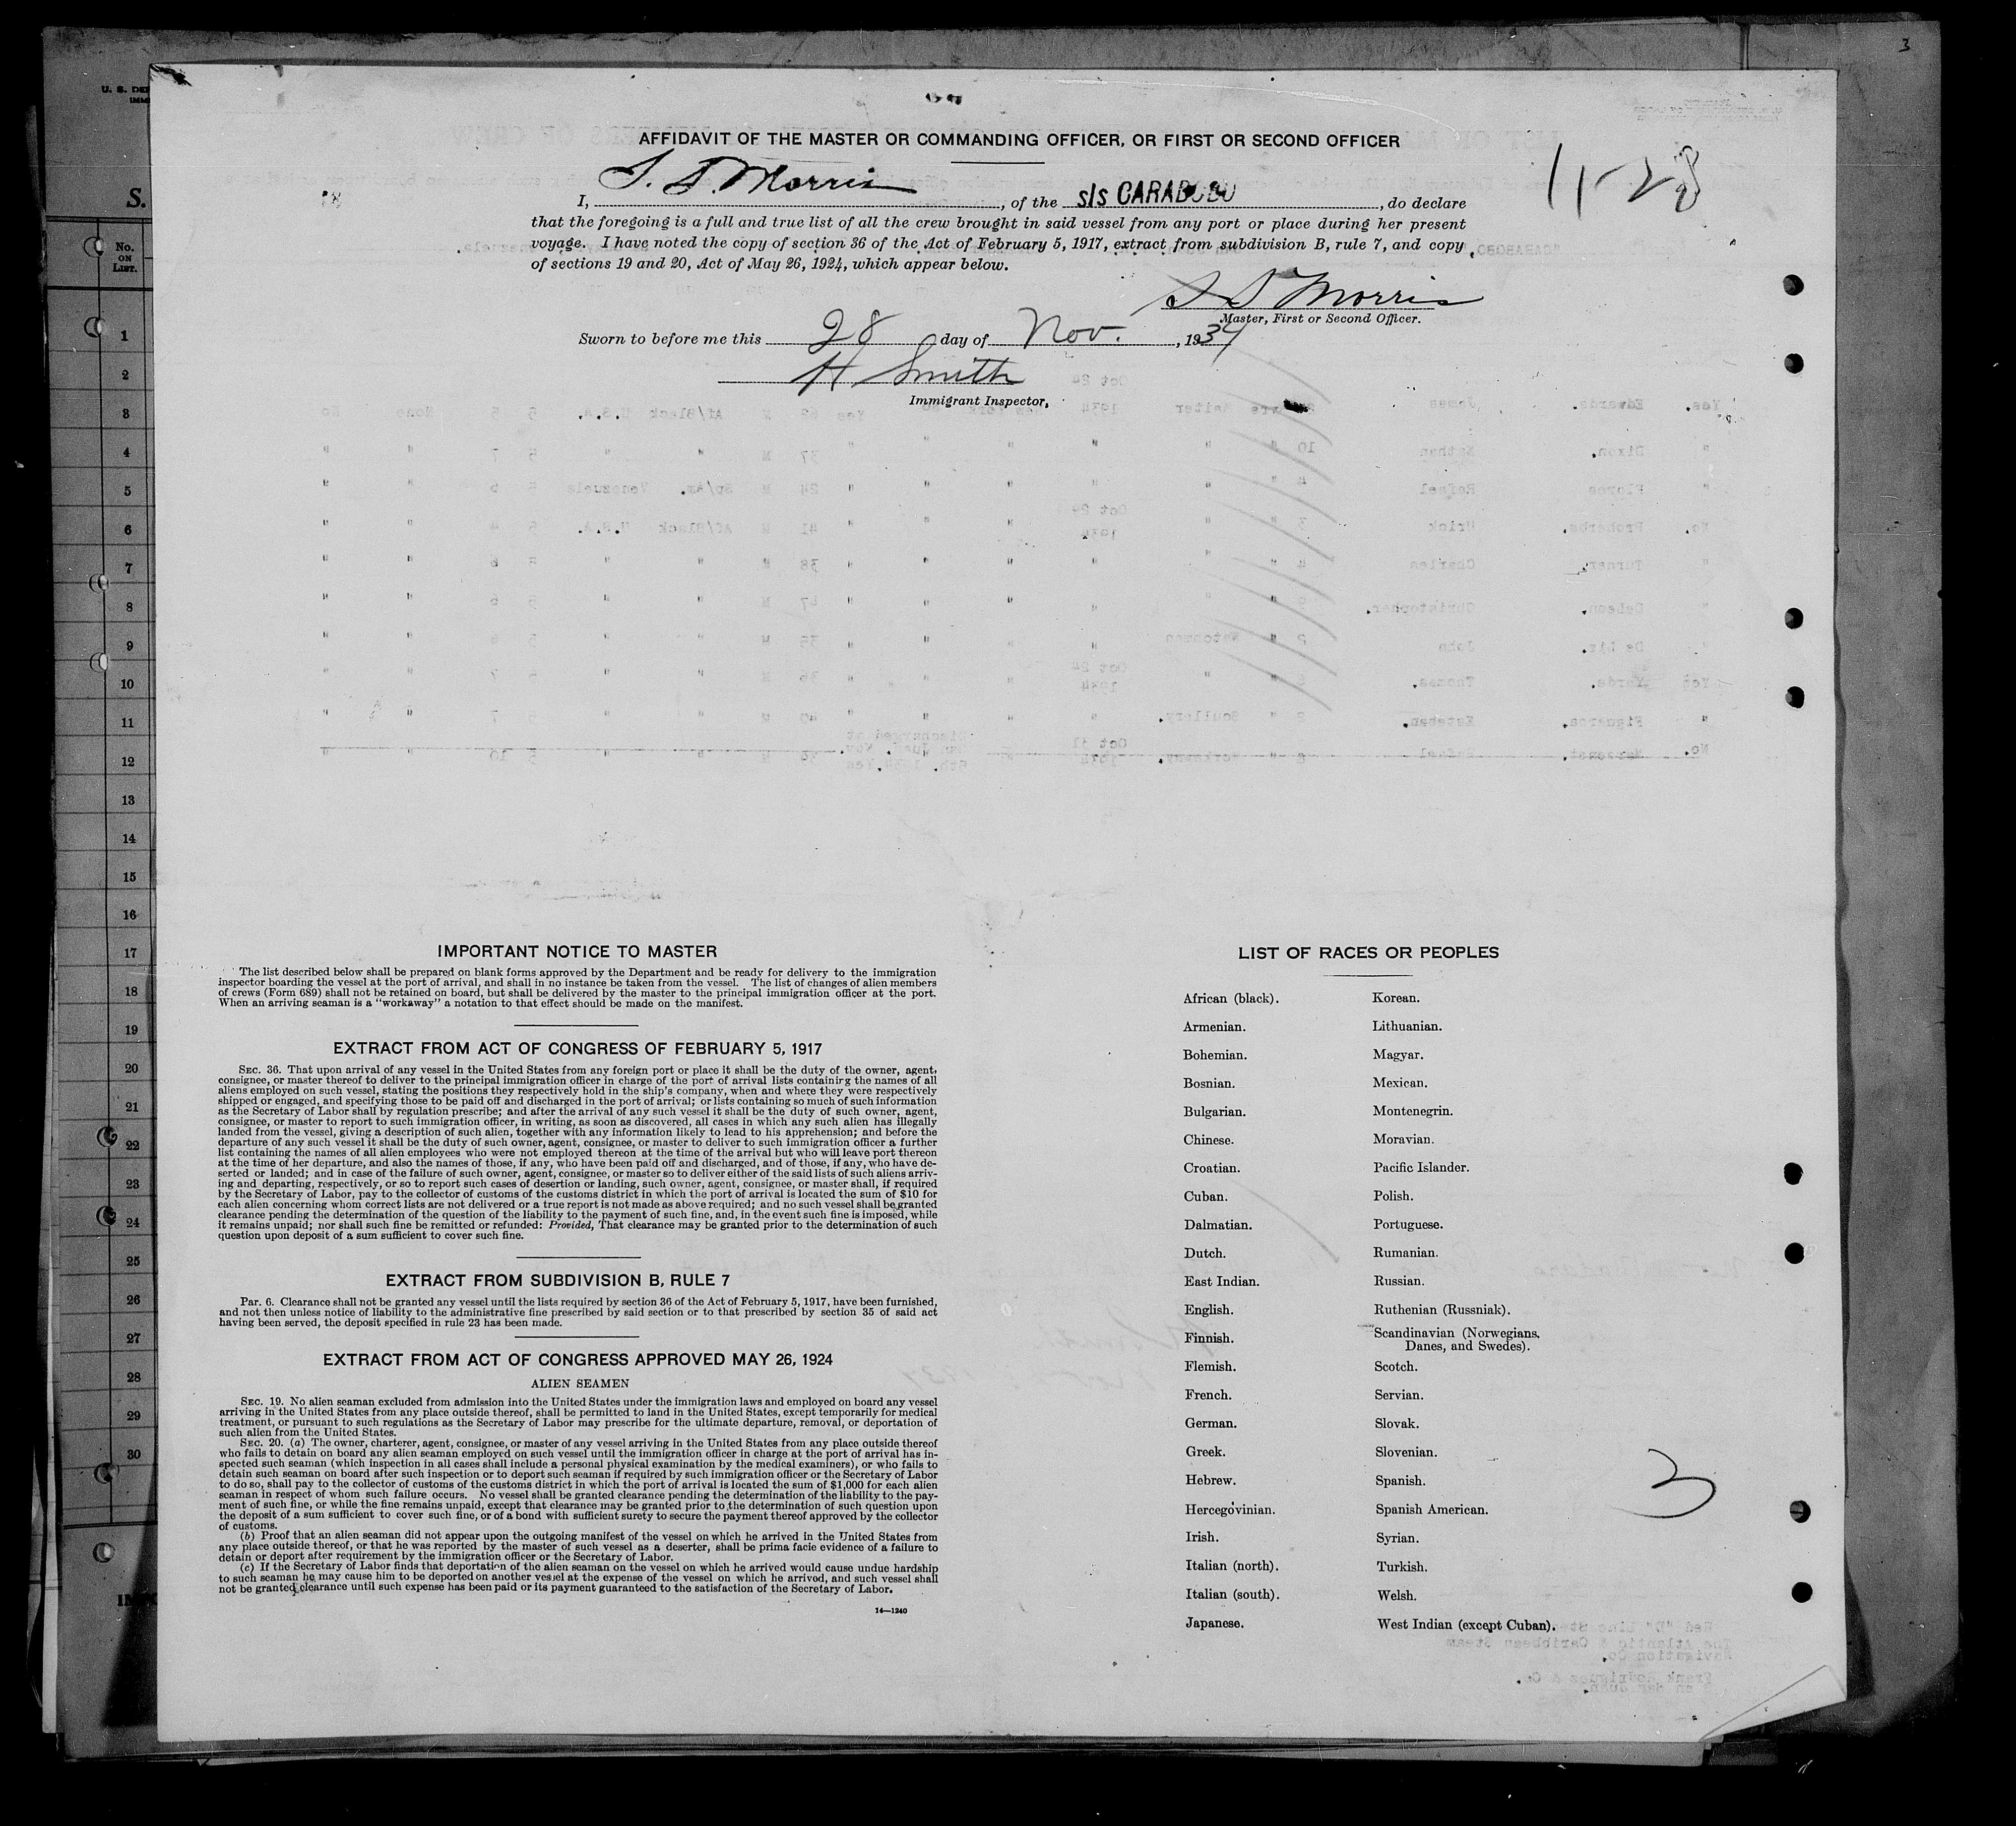 3
U. S. DE
IMM
S.
No.
ON
LIST.
1
2
3
4
5
6
7
8
9
10
11
12
13
14
15
16
17
18
19
20
21
22
23
24
25
26
27
28
29
30
AFFIDAVIT OF THE MASTER OR COMMANDING OFFICER, OR FIRST OR SECOND OFFICER
11-28
I, S. S. Morris, of the S/S CARABOBO, do declare
that the foregoing is a full and true list of all the crew brought in said vessel from any port or place during her present
voyage. I have noted the copy of section 36 of the Act of February 5, 1917, extract from subdivision B, rule 7, and copy
of sections 19 and 20, Act of May 26, 1924, which appear below.
S S Morris
Master, First or Second Officer.
Sworn to before me this 28 day of Nov., 1934
H Smith
Immigrant Inspector,
IMPORTANT NOTICE TO MASTER
The list described below shall be prepared on blank forms approved by the Department and be ready for delivery to the immigration
inspector boarding the vessel at the port of arrival, and shall in no instance be taken from the vessel. The list of changes of alien members
of crews (Form 689) shall not be retained on board, but shall be delivered by the master to the principal immigration officer at the port.
When an arriving seaman is a "workaway" a notation to that effect should be made on the manifest.
EXTRACT FROM ACT OF CONGRESS OF FEBRUARY 5, 1917
SEC. 36. That upon arrival of any vessel in the United States from any foreign port or place it shall be the duty of the owner, agent,
consignee, or master thereof to deliver to the principal immigration officer in charge of the port of arrival lists containing the names of all
aliens employed on such vessel, stating the positions they respectively hold in the ship's company, when and where they were respectively
shipped or engaged, and specifying those to be paid off and discharged in the port of arrival; or lists containing so much of such information
as the Secretary of Labor shall by regulation prescribe; and after the arrival of any such vessel it shall be the duty of such owner, agent,
consignee, or master to report to such immigration officer, in writing, as soon as discovered, all cases in which any such alien has illegally
landed from the vessel, giving a description of such alien, together with any information likely to lead to his apprehension; and before the
departure of any such vessel it shall be the duty of such owner, agent, consignee, or master to deliver to such immigration officer a further
list containing the names of all alien employees who were not employed thereon at the time of the arrival but who will leave port thereon
at the time of her departure, and also the names of those, if any, who have been paid off and discharged, and of those, if any, who have de-
serted or landed; and in case of the failure of such owner, agent, consignee, or master so to deliver either of the said lists of such aliens arriv-
ing and departing, respectively, or so to report such cases of desertion or landing, such owner, agent, consignee, or master shall, if required
by the Secretary of Labor, pay to the collector of customs of the customs district in which the port of arrival is located the sum of $10 for
each alien concerning whom correct lists are not delivered or a true report is not made as above required; and no such vessel shall be granted
clearance pending the determination of the question of the liability to the payment of such fine, and, in the event such fine is imposed, while
it remains unpaid; nor shall such fine be remitted or refunded: Provided, That clearance may be granted prior to the determination of such
question upon deposit of a sum sufficient to cover such fine.
EXTRACT FROM SUBDIVISION B, RULE 7
Par. 6. Clearance shall not be granted any vessel until the lists required by section 36 of the Act of February 5, 1917, have been furnished,
and not then unless notice of liability to the administrative fine prescribed by said section or to that prescribed by section 35 of said act
having been served, the deposit specified in rule 23 has been made.
EXTRACT FROM ACT OF CONGRESS APPROVED MAY 26, 1924
ALIEN SEAMEN
SEC. 19. No alien seaman excluded from admission into the United States under the immigration laws and employed on board any vessel
arriving in the United States from any place outside thereof, shall be permitted to land in the United States, except temporarily for medical
treatment, or pursuant to such regulations as the Secretary of Labor may prescribe for the ultimate departure, removal, or deportation of
such alien from the United States.
SEC. 20. (a) The owner, charterer, agent, consignee, or master of any vessel arriving in the United States from any place outside thereof
who fails to detain on board any alien seaman employed on such vessel until the immigration officer in charge at the port of arrival has in-
spected such seaman (which inspection in all cases shall include a personal physical examination by the medical examiners), or who fails to
detain such seaman on board after such inspection or to deport such seaman if required by such immigration officer or the Secretary of Labor
to do so, shall pay to the collector of customs of the customs district in which the port of arrival is located the sum of $1,000 for each alien
seaman in respect of whom such failure occurs. No vessel shall be granted clearance pending the determination of the liability to the pay-
ment of such fine, or while the fine remains unpaid, except that clearance may be granted prior to the determination of such question upon
the deposit of a sum sufficient to cover such fine, or of a bond with sufficient surety to secure the payment thereof approved by the collector
of customs.
(b) Proof that an alien seaman did not appear upon the outgoing manifest of the vessel on which he arrived in the United States from
any place outside thereof, or that he was reported by the master of such vessel as a deserter, shall be prima facie evidence of a failure to
detain or deport after requirement by the immigration officer or the Secretary of Labor.
(c) If the Secretary of Labor finds that deportation of the alien seaman on the vessel on which he arrived would cause undue hardship
to such seaman he may cause him to be deported on another vessel at the expense of the vessel on which he arrived, and such vessel shall
not be granted clearance until such expense has been paid or its payment guaranteed to the satisfaction of the Secretary of Labor.
14—1240
LIST OF RACES OR PEOPLES
African (black).
Armenian.
Bohemian.
Bosnian.
Bulgarian.
Chinese.
Croatian.
Cuban.
Dalmatian.
Dutch.
East Indian.
English.
Finnish.
Flemish.
French.
German.
Greek.
Hebrew.
Hercegovinian.
Irish.
Italian (north).
Italian (south).
Japanese.
Korean.
Lithuanian.
Magyar.
Mexican.
Montenegrin.
Moravian.
Pacific Islander.
Polish.
Portuguese.
Rumanian.
Russian.
Ruthenian (Russniak).
Scandinavian (Norwegians,
Danes, and Swedes).
Scotch.
Servian.
Slovak.
Slovenian.
Spanish.
Spanish American.
Syrian.
Turkish.
Welsh.
West Indian (except Cuban).
3